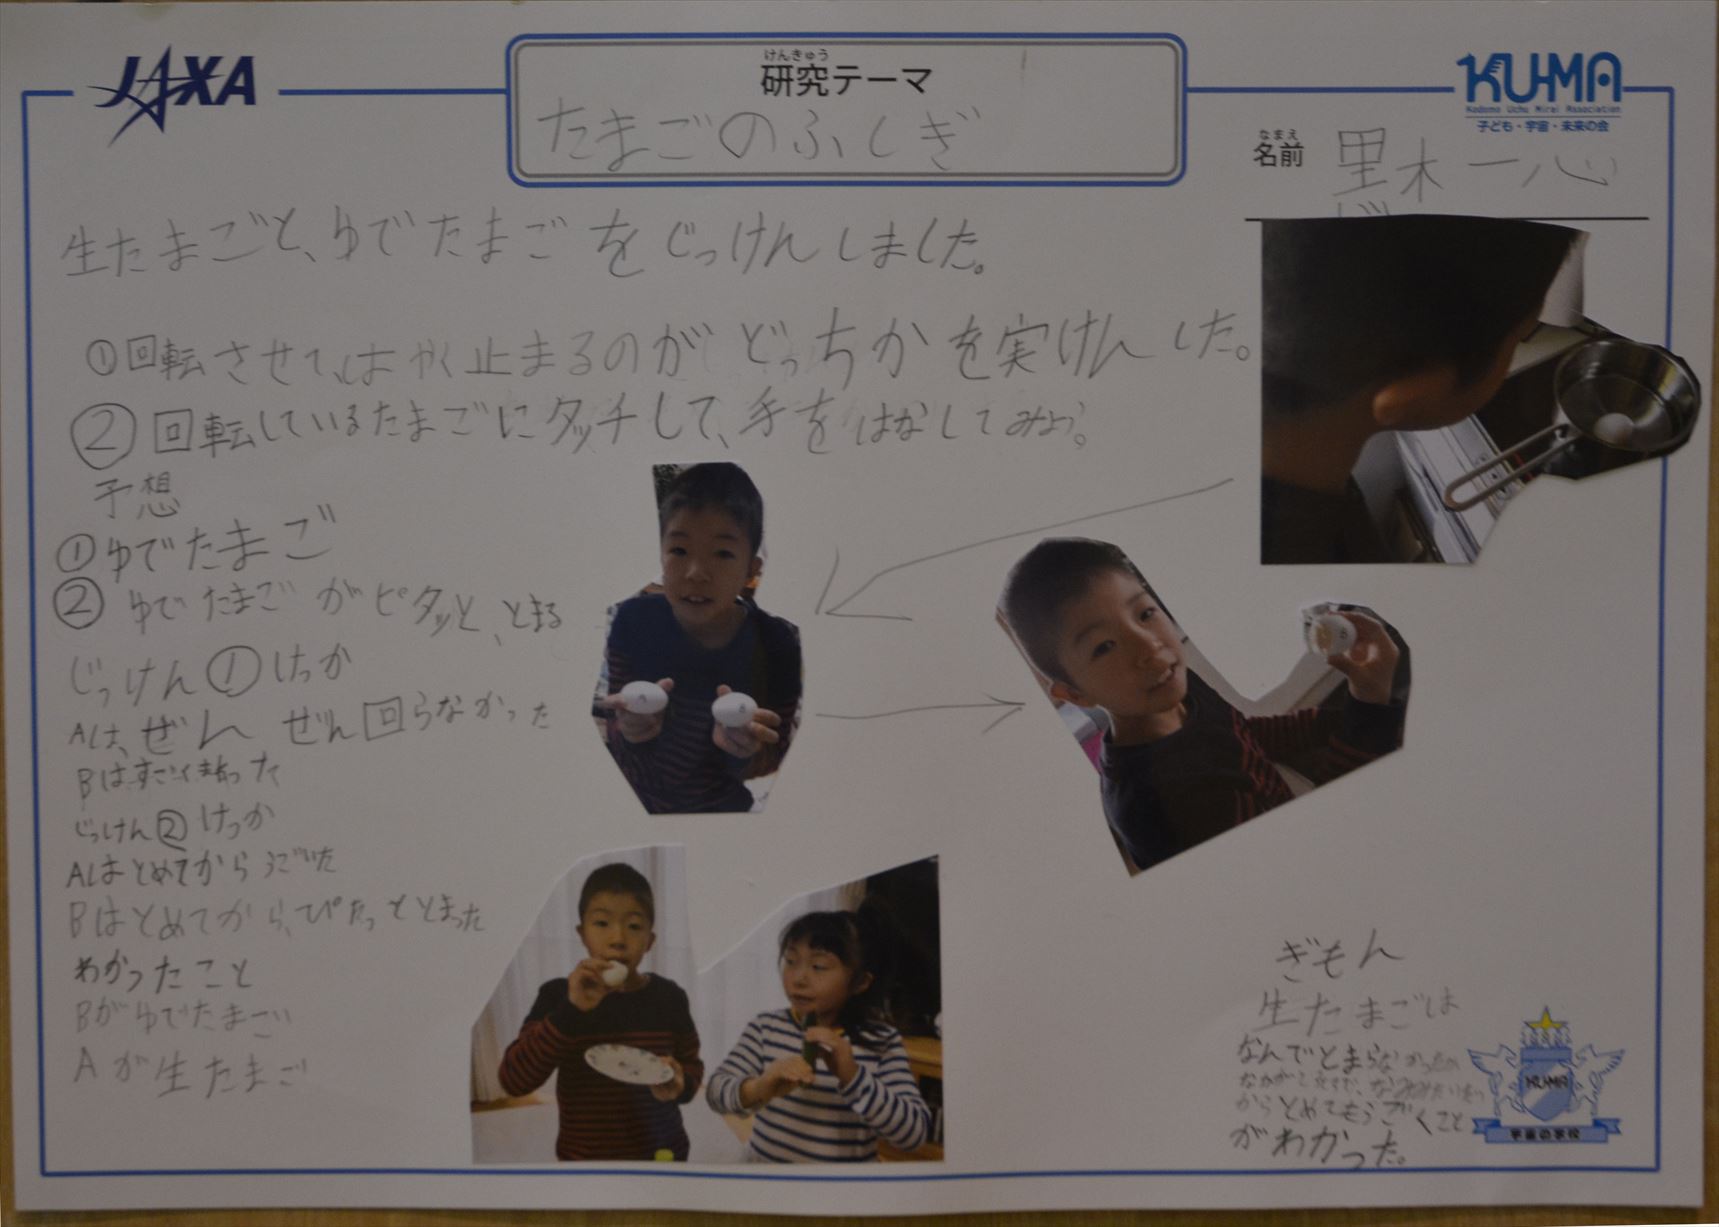 JAXA
けんきゅう
研究テーマ
たまごのふしぎ
KU-MA
Kodomo Uchu Mirai Association
子ども・宇宙・未来の会
なまえ
名前 黒木一心
生たまごと、ゆでたまごをじっけんしました。
①回転させて、はやく止まるのがどっちかを実けんした。
②回転しているたまごにタッチして、手をはなしてみよう。
予想
①ゆでたまご
②ゆでたまごがピタッと、とまる
じっけん①けっか
Aは、ぜんぜん回らなかった
Bはすごくまわった
じっけん②けっか
Aはとめてからうごいた
Bはとめてから、ぴたっととまった
わかったこと
Bがゆでたまご
Aが生たまご
A B
B
ぎもん
生たまごは
なんでとまらなかったか
なかが
からとめてもうごくこと
がわかった。
KU-MA
宇宙の学校